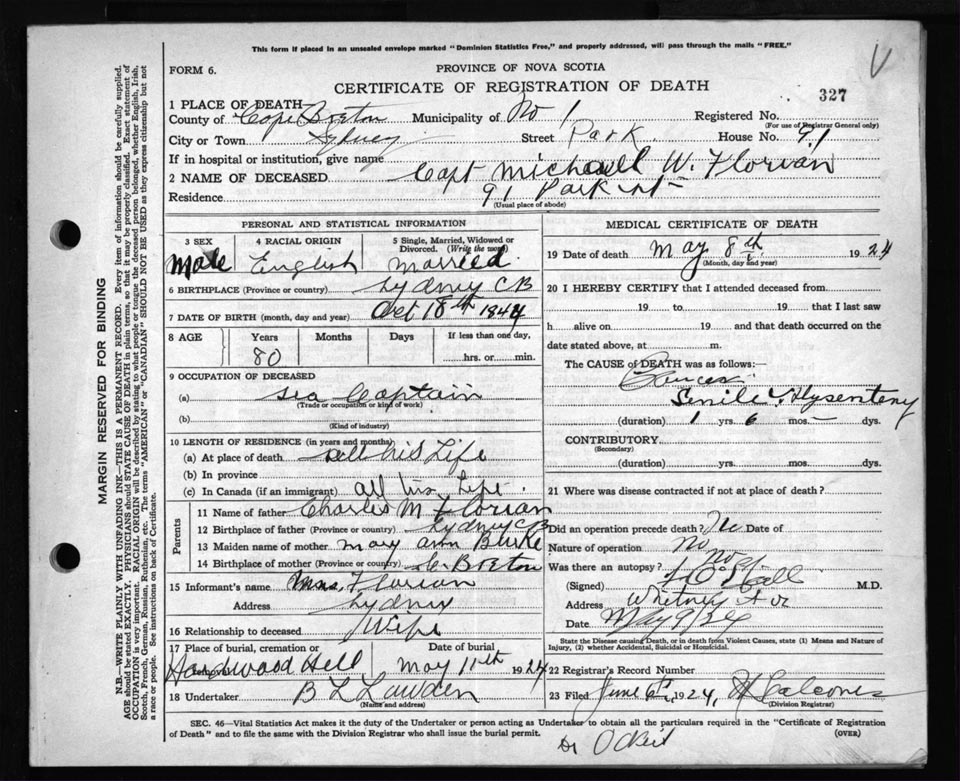 This form if placed in an unsealed envelope marked "Dominion Statistics Free," and properly addressed, will pass through the mails "FREE."
V
FORM 6.
PROVINCE OF NOVA SCOTIA
CERTIFICATE OF REGISTRATION OF DEATH
327
1 PLACE OF DEATH
County of Cape Breton Municipality of No 1 Registered No.
(For use of Registrar General only)
City or Town Sydney Street Park House No. 91
If in hospital or institution, give name
2 NAME OF DECEASED Capt Michael W. Florian
Residence 91 Park St
(Usual place of abode)
PERSONAL AND STATISTICAL INFORMATION
3 SEX 4 RACIAL ORIGIN 5 Single, Married, Widowed or Divorced. (Write the word)
Male English Married
6 BIRTHPLACE (Province or country) Sydney CB
7 DATE OF BIRTH (month, day and year) Oct 18th 1844
8 AGE Years Months Days If less than one day,
80 hrs. or min.
9 OCCUPATION OF DECEASED
(a) Sea Captain
(Trade or occupation or kind of work)
(b)
(Kind of industry)
10 LENGTH OF RESIDENCE (in years and months)
(a) At place of death All his Life
(b) In province
(c) In Canada (if an immigrant) all his Life
Parents
11 Name of father Charles M Florian
12 Birthplace of father (Province or country) Sydney CB
13 Maiden name of mother Mary Ann Burke
14 Birthplace of mother (Province or country) C. Breton
15 Informant's name Mrs. Florian
Address Sydney
16 Relationship to deceased Wife
17 Place of burial, cremation or Date of burial
Hardwood Hill May 11th 1924
18 Undertaker B L Lawden
(Name and address)
MEDICAL CERTIFICATE OF DEATH
19 Date of death May 8th 1924
(Month, day and year)
20 I HEREBY CERTIFY that I attended deceased from
19 to 19 that I last saw
h alive on 19 and that death occurred on the
date stated above, at m.
The CAUSE OF DEATH was as follows:
Senile Dysentery
(duration) 1 yrs. 6 mos. dys.
CONTRIBUTORY
(Secondary)
(duration) yrs. mos. dys.
21 Where was disease contracted if not at place of death?
Did an operation precede death? No Date of
Nature of operation No
Was there an autopsy? No
(Signed) M.D.
Address Whitney Ave
Date May 9/24
State the Disease causing Death, or in death from Violent Causes, state (1) Means and Nature of Injury, (2) whether Accidental, Suicidal or Homicidal.
22 Registrars Record Number
23 Filed June 6th 1924,
(Division Registrar)
SEC. 46—Vital Statistics Act makes it the duty of the Undertaker or person acting as Undertaker to obtain all the particulars required in the "Certificate of Registration
of Death" and to file the same with the Division Registrar who shall issue the burial permit.
(OVER)
Dr
MARGIN RESERVED FOR BINDING
N.B.—WRITE PLAINLY WITH UNFADING INK—THIS IS A PERMANENT RECORD. Every item of information should be carefully supplied.
AGE should be stated EXACTLY. PHYSICIANS should STATE CAUSE OF DEATH in plain terms, so that it may be properly classified. Exact statement of
OCCUPATION is very important. RACIAL ORIGIN will be described by stating to what people or tongue the deceased person belonged, whether English, Irish,
Scotch, French, German, Russian, Ruthenian, etc. The terms "AMERICAN" or "CANADIAN" SHOULD NOT BE USED as they express citizenship but not
a race or people. See instructions on back of Certificate.